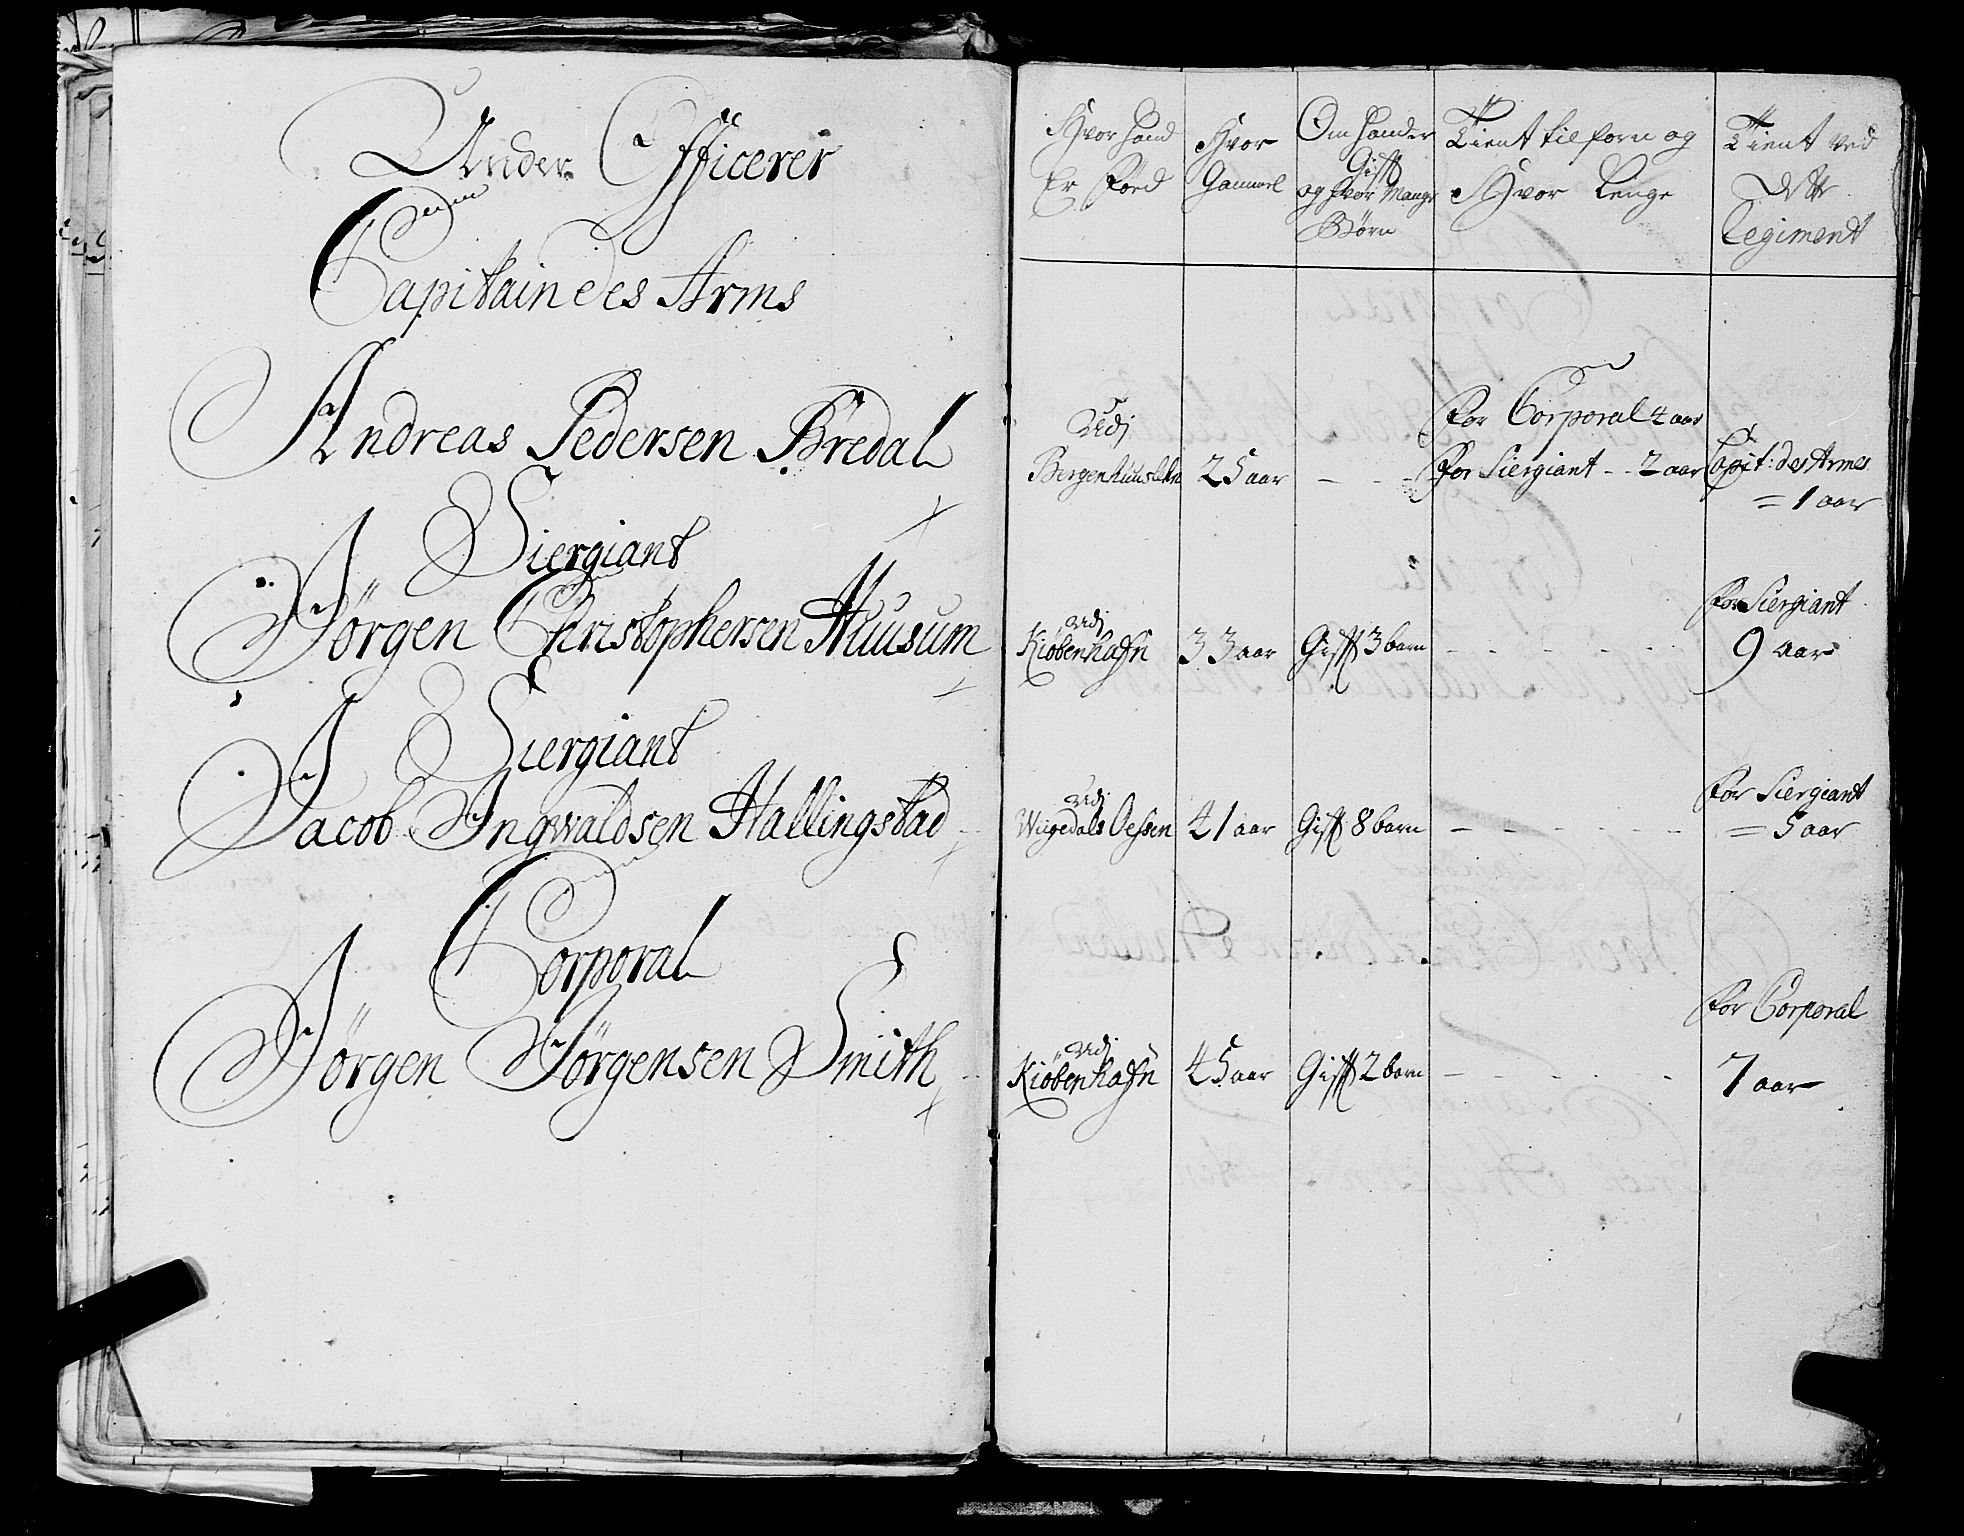 Under Officerer
Capitain des Arms
Andreas Pedersen Bredal
Siergiant
Jörgen Christophersen Huusum
Siergiant
Jacob Ingwaldsen Hallingstad
Corporal
Jörgen Jörgensen Smith
Hvor hand
Er Förd
Hvor
Gammel
Om hand er
Gifft
og hvor Mange
Börn
Tient tilforn og
Hvor Lenge
Tient ved
Dtte
Regiment
Udj
Bergenhuuslehn
25 aar
- - -
for Corporal 4 aar
for Siergiant - - 2 aar
Capit: des Armes
= 1 aar
udj
Kiöbenhafn
33 aar
Gifft 3 barn
for Siergiant
9 aar
Udj
Wiigedals Oessen
41 aar
Gifft 8 barn
for Siergiant
= 5 aar
Udj
Kiöbenhafn
45 aar
Gifft 2 barn
for Corporal
7 aar